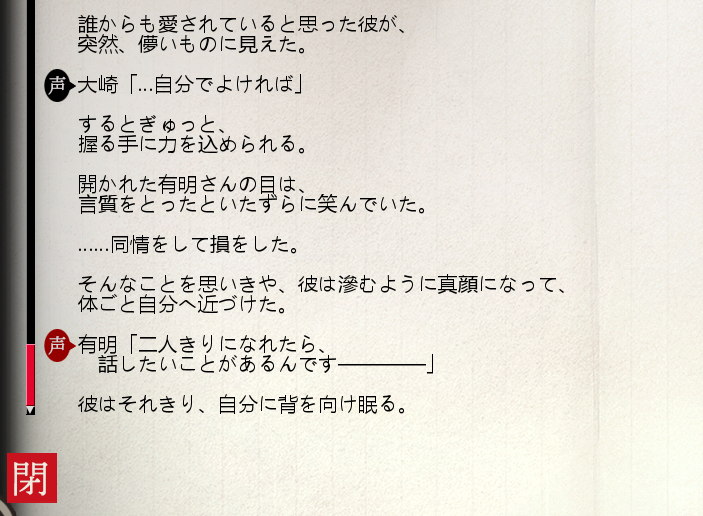 誰からも愛されていると思った彼が、
突然、儚いものに見えた。
声 大崎「…自分でよければ」
するとぎゅっと、
握る手に力を込められる。
開かれた有明さんの目は、
言質をとったといたずらに笑んでいた。
……同情をして損をした。
そんなことを思いきや、彼は滲むように真顔になって、
体ごと自分へ近づけた。
声 有明「二人きりになれたら、
話したいことがあるんです――――」
彼はそれきり、自分に背を向け眠る。
閉